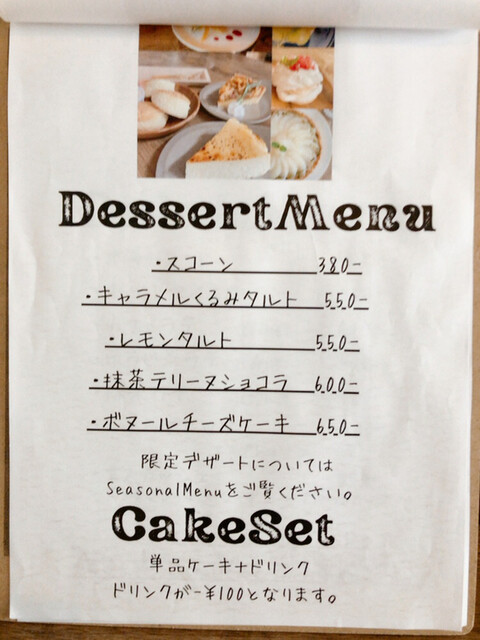 DessertMenu
・スコーン 380-
・キャラメルくるみタルト 550-
・レモンタルト 550-
・抹茶テリーヌショコラ 600-
・ボヌールチーズケーキ 650-
限定デザートについては
SeasonalMenuをご覧ください。
CakeSet
単品ケーキ+ドリンク
ドリンクが-¥100となります。